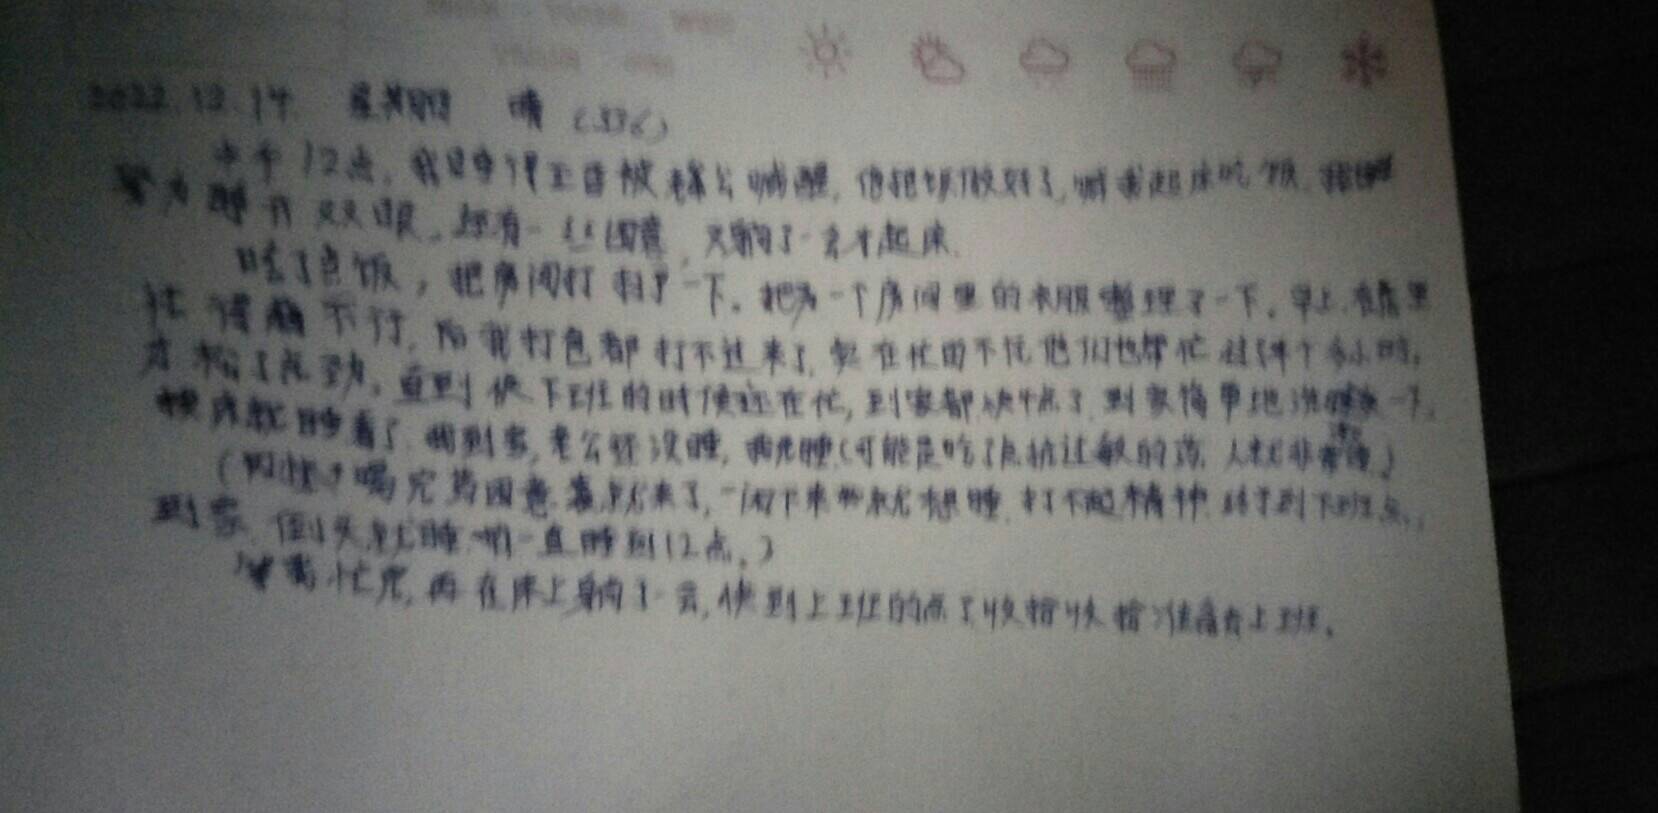 2022.12.14. 星期四 晴 (336)
中午12点，我睡得正香被老公喊醒，他把饭做好了，喊我起床吃饭，我
睁开双眼，还有一丝困意，又躺了一会才起床.
吃了点饭，把房间打扫了一下，把另一个房间里的衣服整理了一下。早上，在店里
忙得不行，后我打包都打不过来了，他们也帮忙，半个多小时，
才松了点劲，直到快下班的时候还在忙，到家都快4点了，到家简单地洗一下，
就睡着了，我到家，老公还没睡，我先睡(可能是吃了点抗过敏的药，人就非常)
喝完药困意就来了，一闲下来就想睡，打不起精神，终于到下班点，
到家，倒头就睡，一直睡到12点。)
忙完，再在床上躺了一会，快到上班的点了收拾收拾准备去上班。